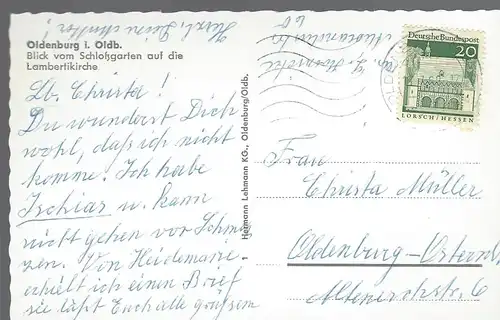 Oldenburg i. Oldb.
Blick vom Schloßgarten auf die
Lambertikirche
Lb. Christa!
Du wunderst Dich
wohl, daß ich nicht
komme. Ich habe
Ischias u. kann
nicht gehen vor Schmer
zen. Von Heidemarie
erhielt ich einen Brief
sie läßt Euch alle grüßen
Herzl. Deine Mutter!
Hermann Lehmann KG., Oldenburg/Oldb.
Deutsche Bundespost
20
LORSCH/HESSEN
Frau
Christa Müller
Oldenburg-Ostern
6